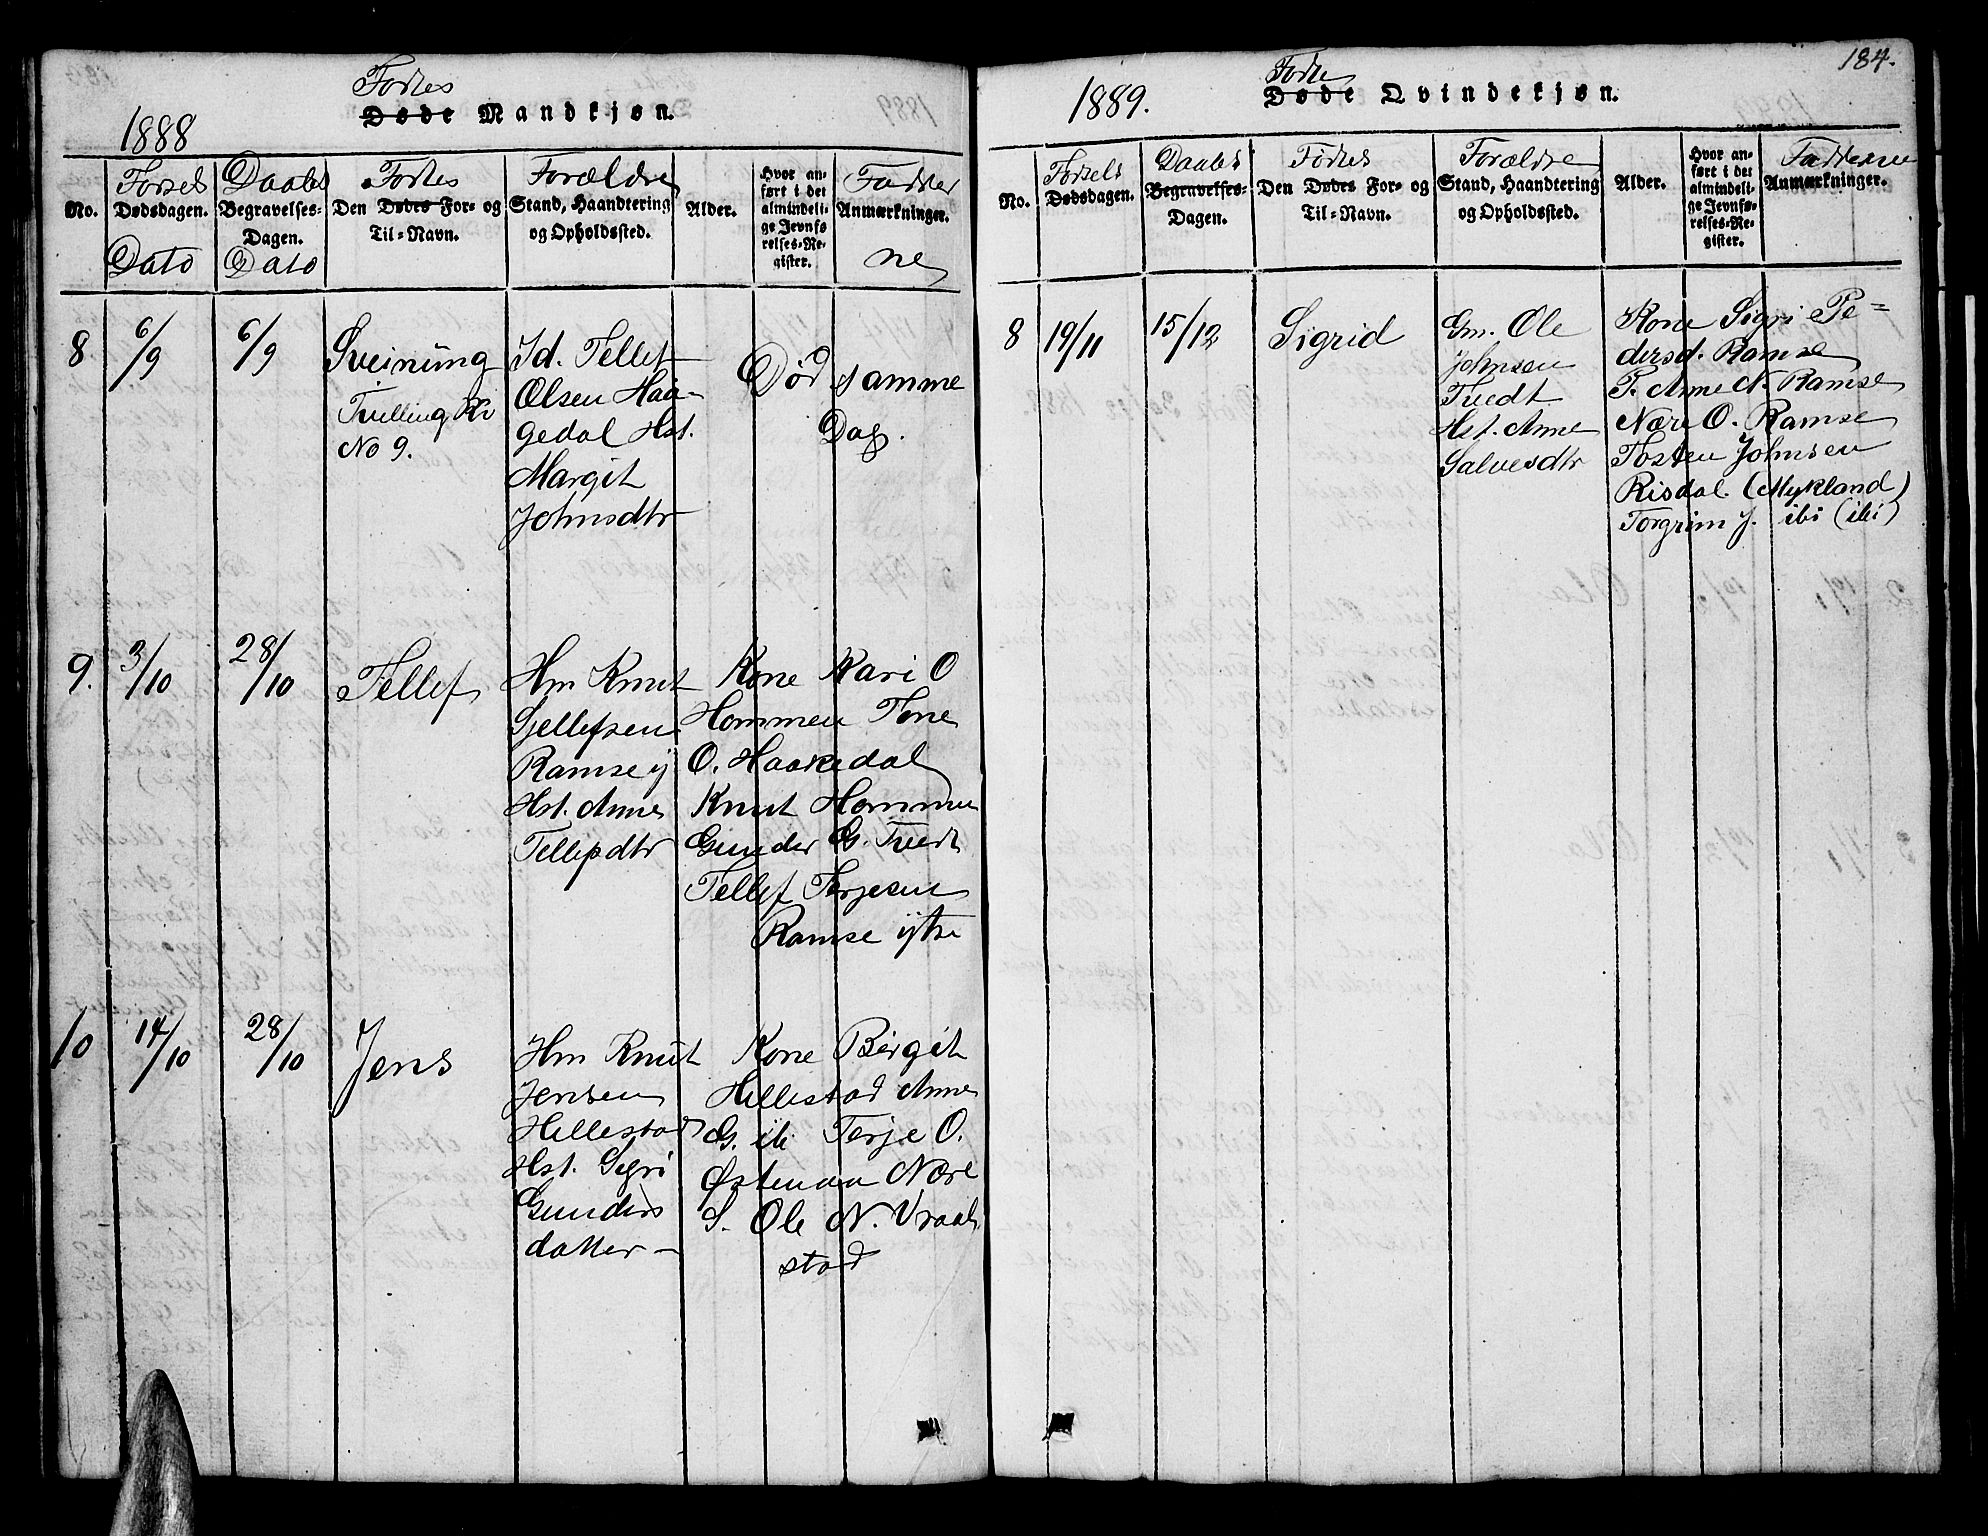 Fødtes
Døde Mandkjøn.
1888
Fødsels Daabs Fødtes Forældre Fadder
No. Dødsdagen. Begravelses-Dagen. Den Dødes For- og Til-Navn. Stand, Haandtering og Opholdssted. Alder. Hvor anført i det almindelige Jevnførelses-Register. Anmærkninger.
Dato Dato ne
8 6/9 6/9 Sveinung Id. Tellef Død samme
Tvilling
No 9.
Olsen Haa-
gedal Hst. Dag.
Margit
Johnsdtr
9. 3/10 28/10 Tellef Hm Knut Kone Kari O
Tjellefsen Hommen Tone
Ramse y O. Haakedal
Hst. Anne Knut Hommen
Tellefsdtr Gunder G. Tvedt
Tellef Terjesen
Ramse ytre
10 14/10 28/10 Jens Hm Knut Kone Birgit
Jensen Hillestad Anne
Hillestad G. ib. Terje O.
Hst. Sigri Østenaa Nære
Gunders S. Ole N. Vraal
datter stad
184.
Fødte
1889. Døde Qvindekjøn.
Fødsels Daabs Fødtes Forældre Fadderne
No. Dødsdagen. Begravelses-Dagen. Den Dødes For- og Til-Navn. Stand, Haandtering og Opholdssted. Alder. Hvor anført i det almindelige Jevnførelses-Register. Anmærkninger.
8 19/11 15/12 Sigrid Gm. Ole Kone Sigri Pe=
Johnsen dersd. Ramse
Tvedt P. Anne N. Ramse
Hst. Anne Nære O. Ramse
Salvesdtr Tosten Johnsen
Risdal (Mykland)
Torgrim J. ibi (ibi)